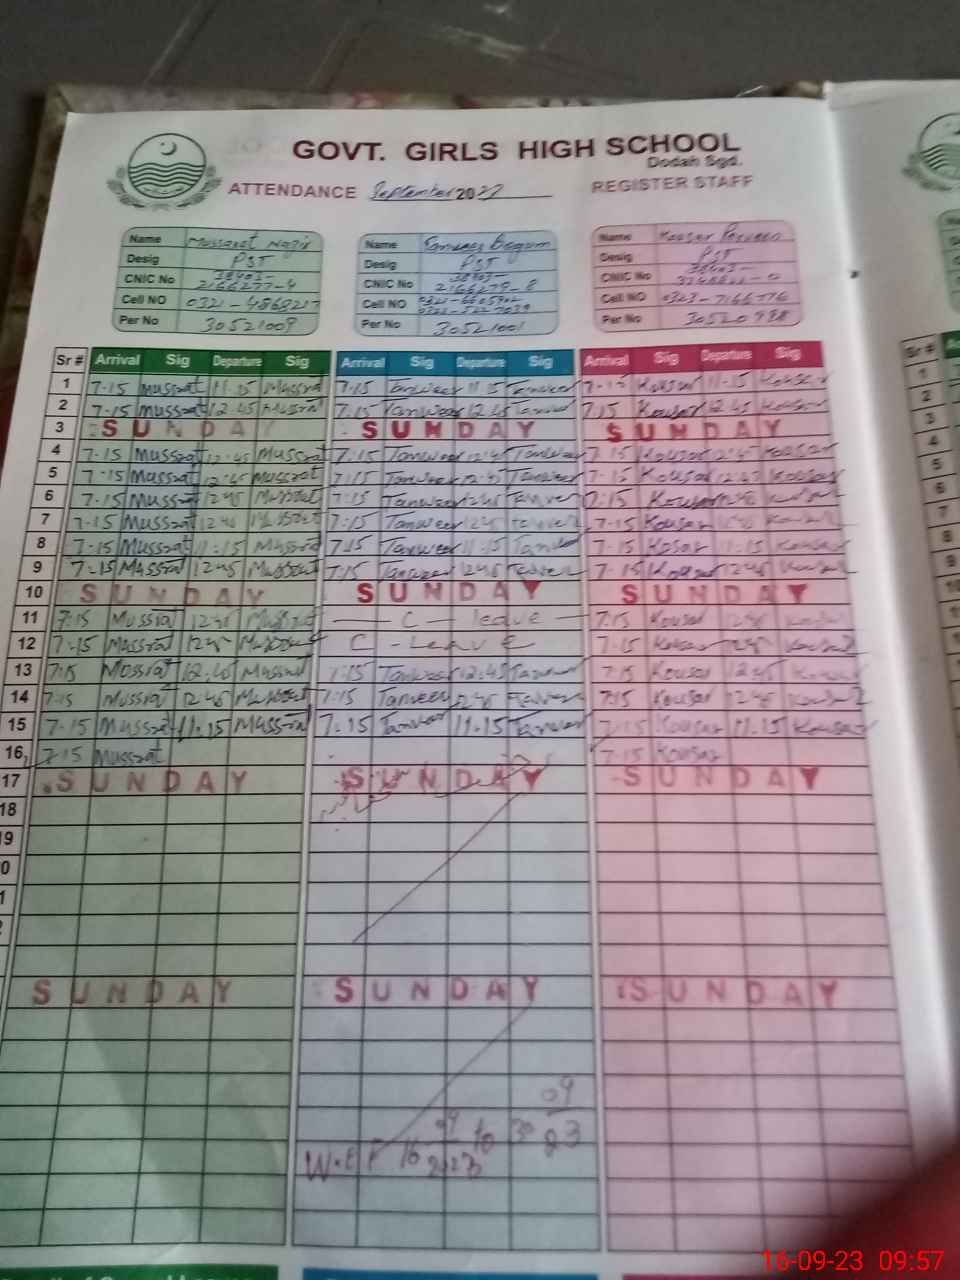 GOVT. GIRLS HIGH SCHOOL
Dodah Sgd.
ATTENDANCE September 20 REGISTER STAFF
Name Mussarat Nazir Name Tanveer Begum Name Kousar Perveen
Desig PST Desig PST Desig PST
CNIC No 38403- CNIC No 38403- CNIC No 38403-
2166277-4 2166279-8
Cell NO 0321-4868217 Cell NO Cell NO 0323-7166776
Per No 30521009 Per No 30521001 Per No 30520988
Sr # Arrival Sig Departure Sig Arrival Sig Departure Sig Arrival Sig Departure Sig
1 7-15 Mussrat 11.15 Mussrat 7:15 Tanveer 11.15 Tanveer 7-15 Kousar 11-15 Kousar
2 7-15 Mussrat 12.45 Mussrat 7:15 Tanveer 12.45 Tanveer 7:15 Kousar 12.45 Kousar
3 SUNDAY SUNDAY SUNDAY
4 7-15 Mussrat 12-45 Mussrat 7:15 Tanveer 12-45 Tanveer 7.15 Kousar 12-45 Kousar
5 7-15 Mussrat 12-45 Mussrat 7:15 Tanveer 12-45 Tanveer 7-15 Kousar 12-45 Kousar
6 7-15 Mussrat 1245 Mussrat 7:15 Tanveer 1245 Tanveer 7:15 Kousar 1245 Kousar
7 7-15 Mussrat 1245 Mussrat 7:15 Tanveer 1245 Tanveer 7-15 Kousar 1245 Kousar
8 7-15 Mussrat 11:15 Mussrat 7:15 Tanveer 11:15 Tanveer 7-15 Kosar 11-15 Kousar
9 7:15 Massrat 1245 Mussrat 7:15 Tanveer 1245 Tanveer 7-15 Kousar 1245 Kousar
10 SUNDAY SUNDAY SUNDAY
11 7:15 Mussrat 1245 Mussrat — C — leave — 7:15 Kousar 1245 Kousar
12 7-15 Massrat 1245 Mussrat C - Leave 7-15 Kousar 1245 Kousar
13 7:15 Mossrat 12.45 Mussrat 7:15 Tanveer 12.45 Tanveer 7.15 Kousar 12.45 Kousar
14 7:15 Mussrat 12.45 Mussrat 7:15 Tanveer 12.45 Tanveer 7:15 Kousar 12.45 Kousar
15 7-15 Mussrat 11.15 Mussrat 7:15 Tanveer 11.15 Tanveer 7:15 Kousar 11-15 Kousar
16 7-15 Mussrat 7-15 Kousar
17 SUNDAY SUNDAY SUNDAY
18
19
SUNDAY SUNDAY SUNDAY
09
W.E.F 16 09 2023 to 30 23
16-09-23 09:57